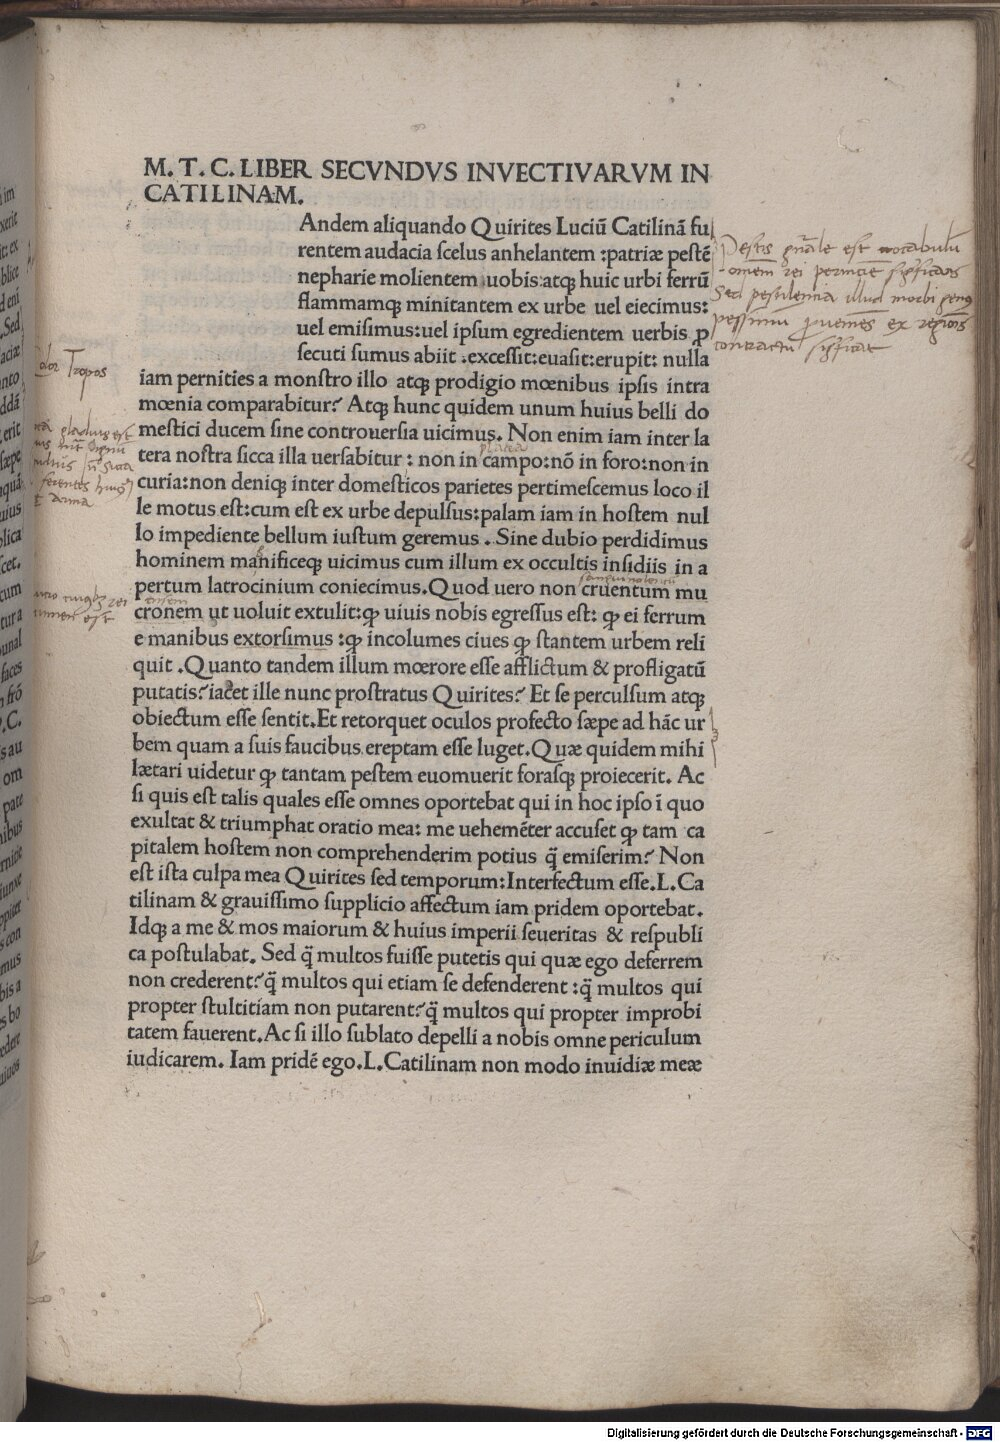 M. T. C. LIBER SECVNDVS INVECTIVARVM IN
CATILINAM.
Andem aliquando Quirites Luciū Catilinā fu
rentem audacia scelus anhelantem :patriæ pestē
nepharie molientem uobis:atqꝫ huic urbi ferrū
flammamqꝫ minitantem ex urbe uel eiecimus:
uel emisimus:uel ipsum egredientem uerbis ꝓ
secuti sumus abiit .excessit:euasit:erupit: nulla
iam pernities a monstro illo atqꝫ prodigio mœnibus ipsis intra
mœnia comparabitur? Atqꝫ hunc quidem unum huius belli do
mestici ducem sine controuersia uicimus. Non enim iam inter la
tera nostra sicca illa uersabitur : non in campo:nō in foro:non in
curia:non deniqꝫ inter domesticos parietes pertimescemus loco il
le motus est:cum est ex urbe depulsus:palam iam in hostem nul
lo impediente bellum iustum geremus . Sine dubio perdidimus
hominem manificeqꝫ uicimus cum illum ex occultis insidiis in a
pertum latrocinium coniecimus.Quod uero non cruentum mu
cronem ut uoluit extulit:ꝙ uiuis nobis egressus est: ꝙ ei ferrum
e manibus extorsimus :ꝙ incolumes ciues ꝙ stantem urbem reli
quit .Quanto tandem illum mœrore esse afflictum & profligatū
putatis?iacet ille nunc prostratus Quirites? Et se perculsum atqꝫ
obiectum esse sentit.Et retorquet oculos profecto sæpe ad hāc ur
bem quam a suis faucibus ereptam esse luget.Quæ quidem mihi
lætari uidetur ꝙ tantam pestem euomuerit forasqꝫ proiecerit. Ac
si quis est talis quales esse omnes oportebat qui in hoc ipso ī quo
exultat & triumphat oratio mea: me uehemēter accuset ꝙ tam ca
pitalem hostem non comprehenderim potius q̄ emiserim? Non
est ista culpa mea Quirites sed temporum:Interfectum esse.L.Ca
tilinam & grauissimo supplicio affectum iam pridem oportebat.
Idqꝫ a me & mos maiorum & huius imperii seueritas & respubli
ca postulabat. Sed q̄ multos fuisse putetis qui quæ ego deferrem
non crederent?q̄ multos qui etiam se defenderent :q̄ multos qui
propter stultitiam non putarent?q̄ multos qui propter improbi
tatem fauerent.Ac si illo sublato depelli a nobis omne periculum
iudicarem. Iam pridē ego.L.Catilinam non modo inuidiæ meæ
Pestis gn̄ale est uocabulū
omēm rei
Sed pestilentia illud morbi genus
pessimū ex
Tropos
platea
Digitalisierung gefördert durch die Deutsche Forschungsgemeinschaft - DFG